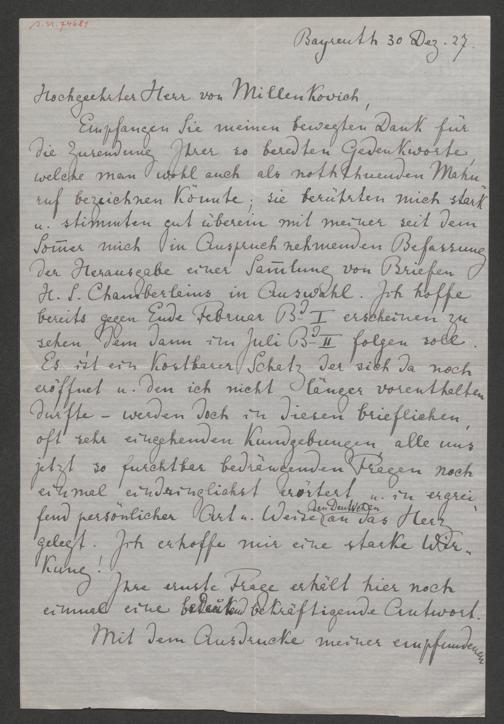 Bayreuth 30 Dez. 27.
Hochgeehrter Herr von Millenkovich,
Empfangen Sie meinen bewegten Dank für
die Zusendung Ihrer so beredten Gedenkworte,
welche man wohl auch als noththuenden Mahn
ruf bezeichnen könnte; sie berührten mich stark
u. stimmten gut überein mit meiner seit dem
Som̅er mich in Anspruch nehmenden Befassung
der Herausgabe einer Sam̅lung von Briefen
H. S. Chamberleins in Auswahl. Ich hoffe
bereits gegen Ende Februar Bd I erscheinen zu
sehen dem dann im Juli Bd II folgen soll.
Es ist ein kostbarer Schatz der sich da noch
eröffnet u. den ich nicht länger vorenthalten
durfte – werden doch in diesen brieflichen,
oft sehr eingehenden Kundgebungen alle uns
jetzt so furchtbar bedrängenden Fragen noch
einmal eindringlichst erörtert u. in ergrei
fend persönlicher Art u. Weise den Deutschen an das Herz
gelegt. Ich erhoffe mir eine starke Wir-
kung!
Ihre ernste Frage erhält hier noch
einmal eine bekräftigende Antwort.
Mit dem Ausdrucke meiner empfundenen